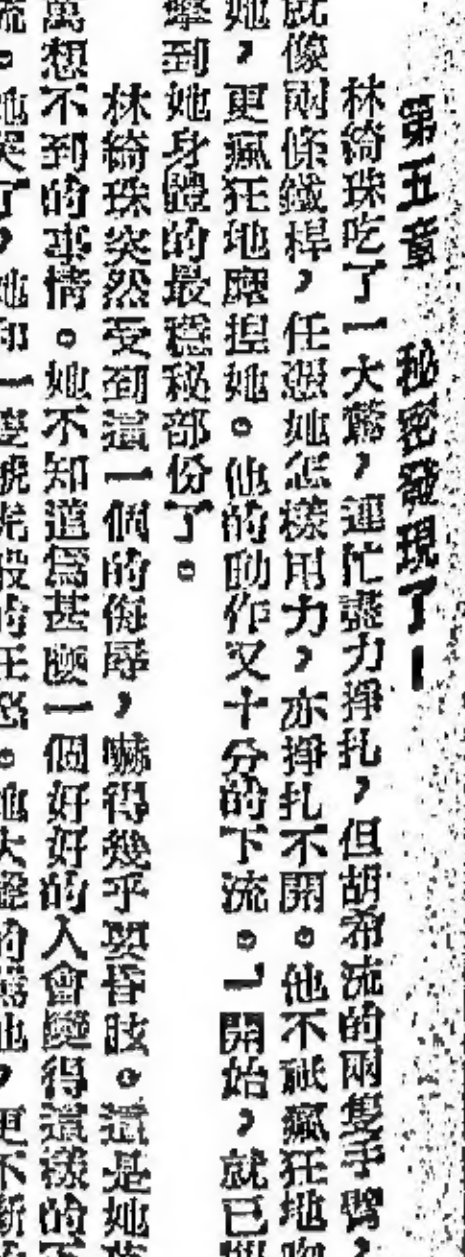 第五章 秘密發現了！
林綺珠吃了一大驚，連忙盡力掙扎，但胡希流的兩隻手臂，
就像兩條鐵桿，任憑她怎樣用力，亦掙扎不開。他不祇瘋狂地吻
她，更瘋狂地摩捏她。他的動作又十分的下流。一開始，就已
擊到她身體的最穩秘部份了。
林綺珠突然受到這一個的侮辱，嚇得幾乎要昏眩。這是她
萬想不到的事情。她不知道爲甚麼一個好好的人會變得這樣的下
流。她哭了，她和一